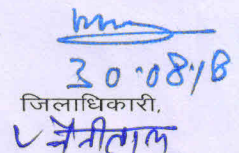 30.08.18
जिलाधिकारी,
नैनीताल